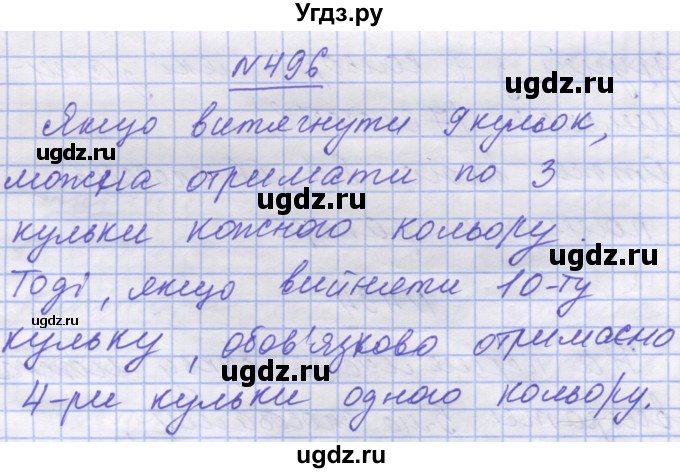 Угдз.ру
№496
ugdz.ru
Якщо витягнути 9 кульок,
ugdz.ru ugdz.ru
можна отримати по 3
ugdz.ru
кульки кожного кольору.
ugdz.ru
Тоді, якщо вийняти 10-ту
ugdz.ru ugdz.ru
кульку, обов'язково отримаємо
ugdz.ru
4-ри кульки одного кольору.
ugdz.ru